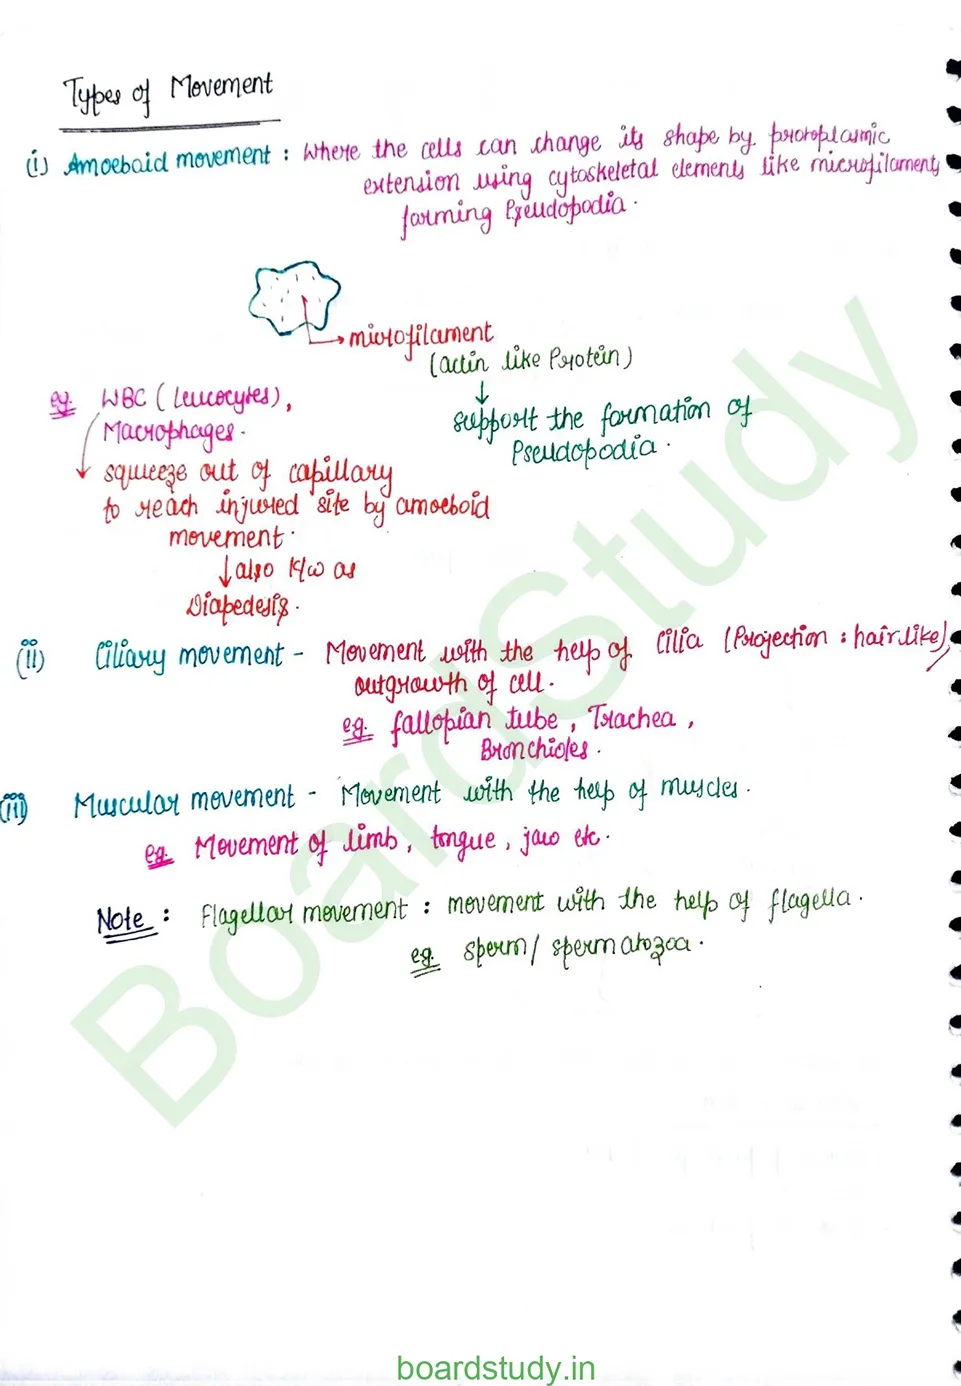 Types of Movement
(i) Amoebaid movement : Where the cells can change its shape by protoplasmic
extension using cytoskeletal elements like microfilaments
forming Pseudopodia.
microfilament
(actin like Protein)
↓
support the formation of
Pseudopodia.
eg. WBC (Leucocytes),
Macrophages.
squeeze out of capillary
to reach injured site by amoeboid
movement.
↓ also K/w as
Diapedesis.
(ii) Ciliary movement - Movement with the help of Cilia (Projection : hair like),
outgrowth of cell.
eg. fallopian tube, Trachea,
Bronchioles.
(iii) Muscular movement - Movement with the help of muscles.
eg. Movement of limb, tongue, jaw etc.
Note : Flagellar movement : movement with the help of flagella.
eg. sperm/spermatozoa.
BoardStudy
boardstudy.in